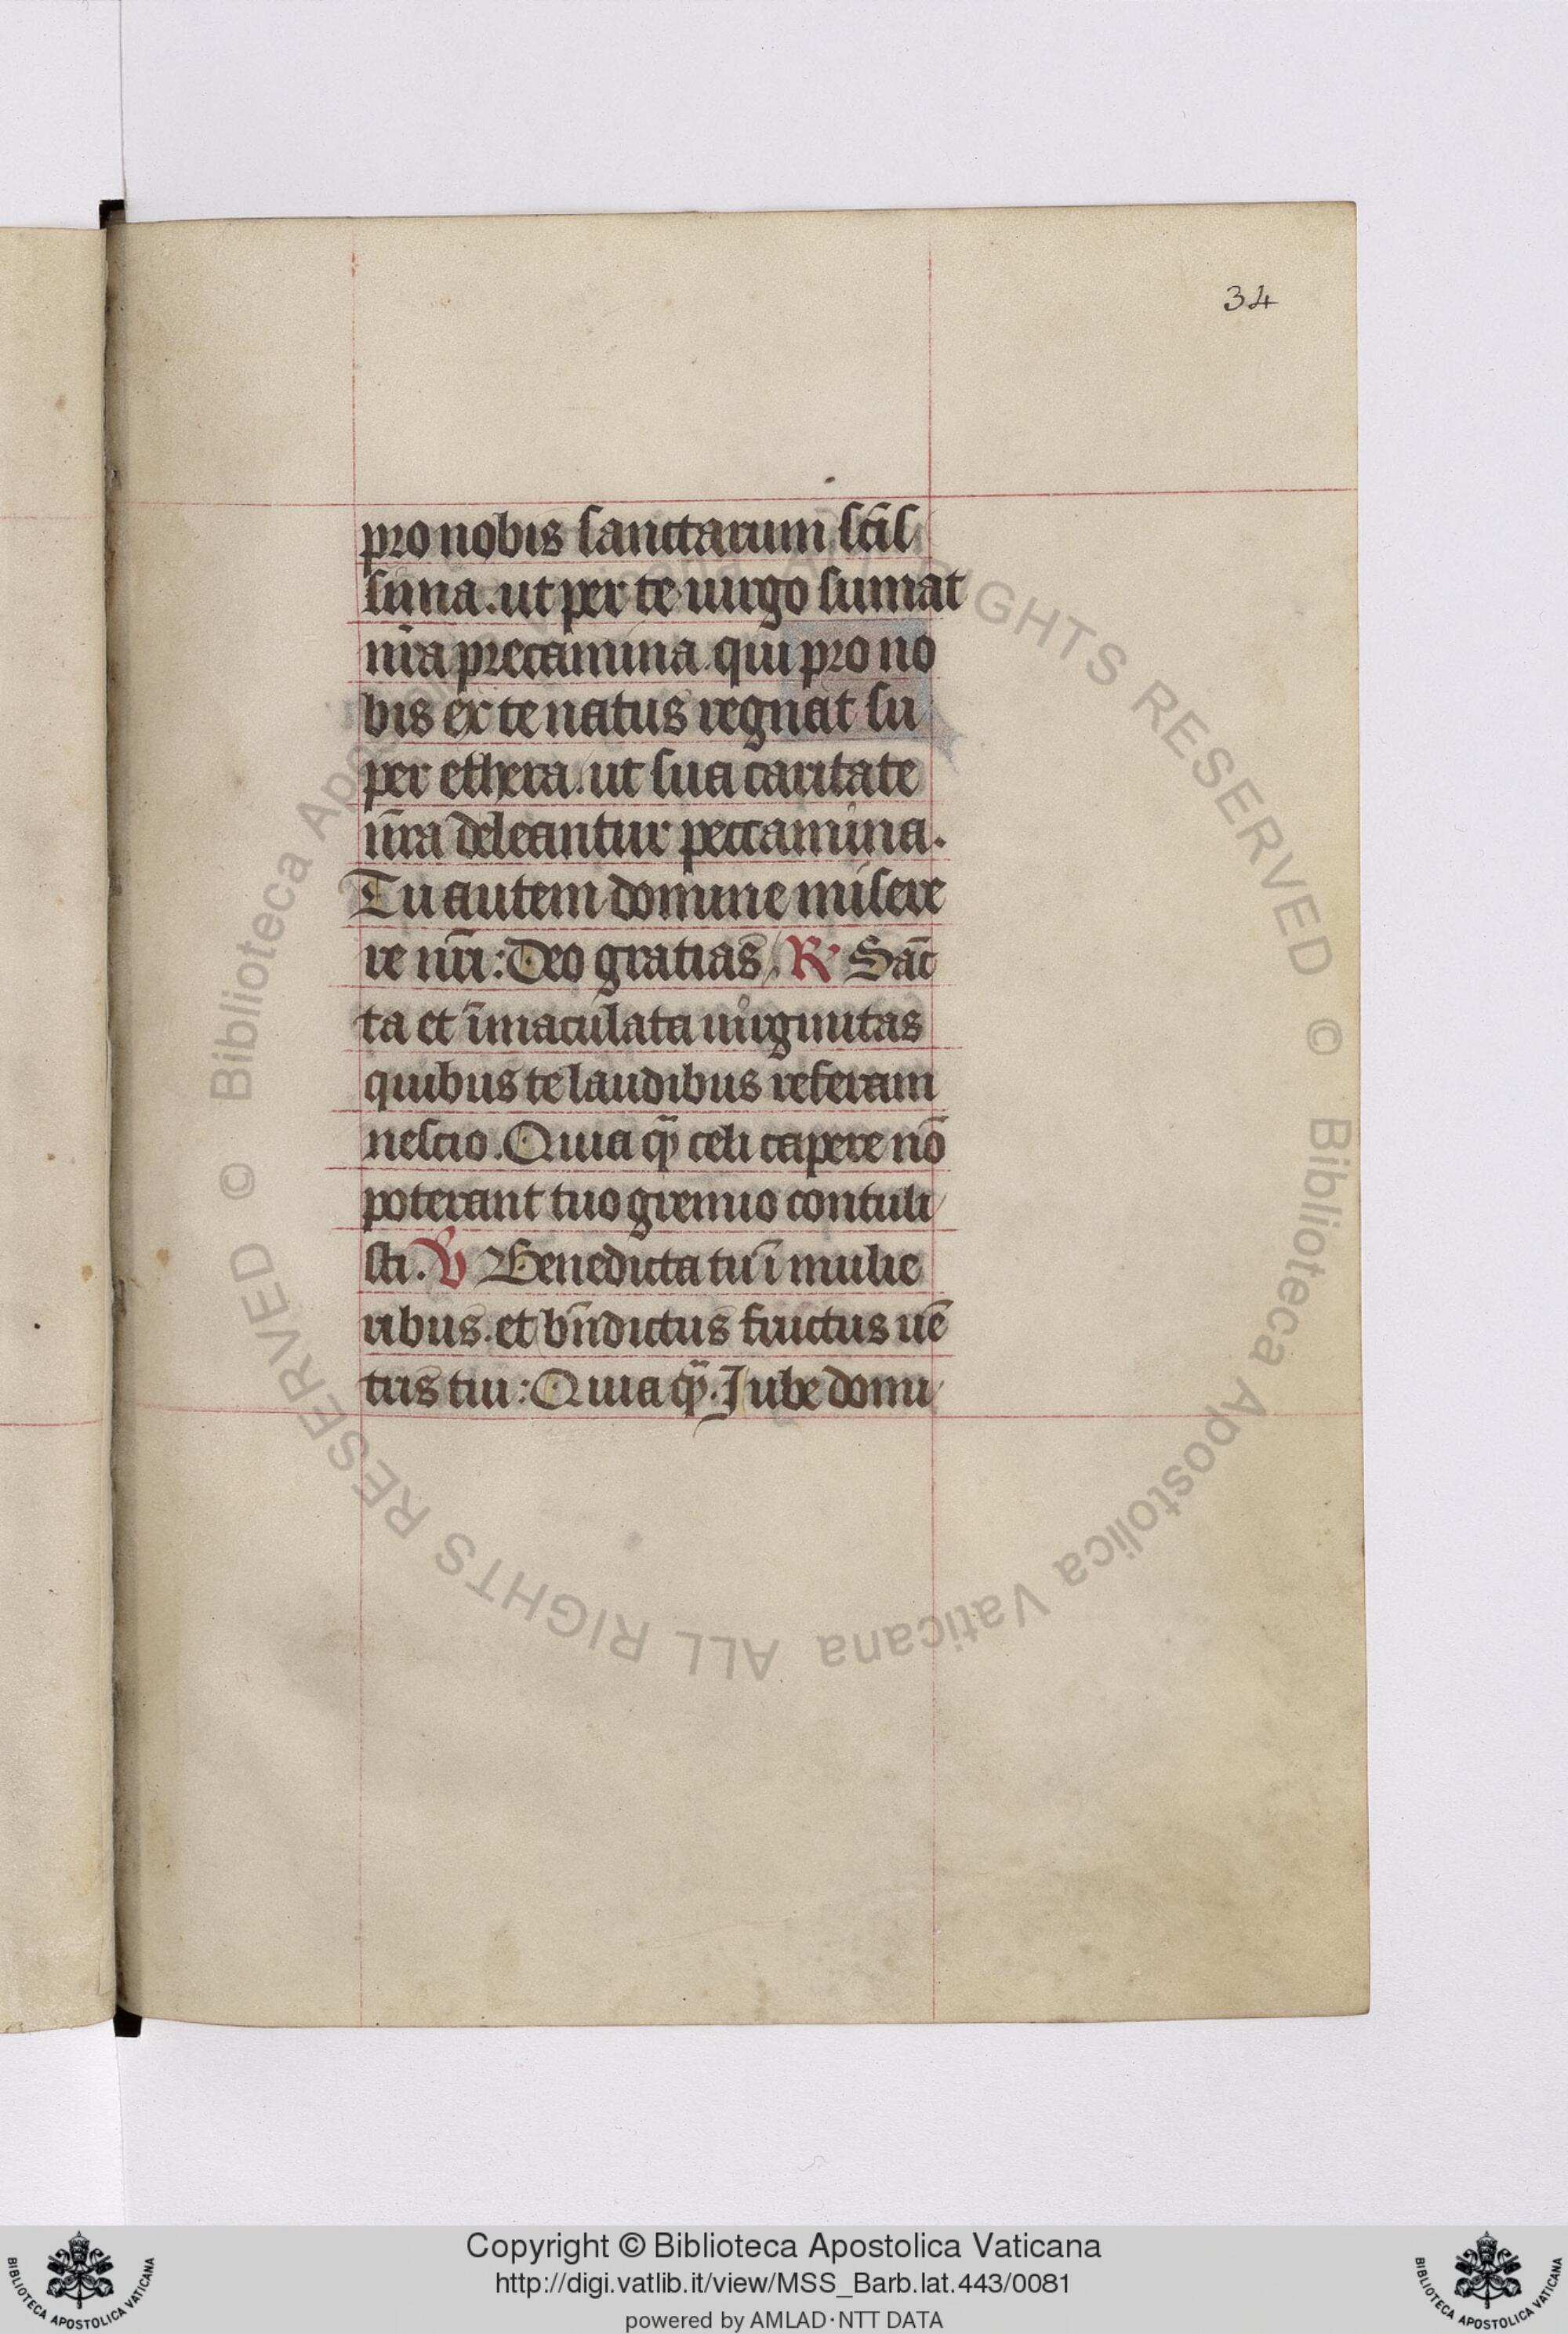 34
pro nobis sanctarum sc̄is
sima. ut per te uirgo sumat
nr̄a precamina. qui pro no
bis ex te natus regnat su
per ethera. ut sua caritate
nr̄a deleantur peccamina.
Tu autem domine misere
re nr̄i: Deo gratias. R Sāc
ta et īmaculata uirginitas
quibus te laudibus referam
nescio. Quia q̄ celi capere nō
poterant tuo gremio contuli
sti. V Benedicta tu ī mulie
ribus. et bn̄dictus fructus uē
tris tui: Quia q̄. Jube domi
© Biblioteca Apostolica Vaticana ALL RIGHTS RESERVED © Biblioteca Apostolica Vaticana ALL RIGHTS RESERVED
BIBLIOTECA APOSTOLICA VATICANA
Copyright © Biblioteca Apostolica Vaticana
http://digi.vatlib.it/view/MSS_Barb.lat.443/0081
powered by AMLAD·NTT DATA
BIBLIOTECA APOSTOLICA VATICANA